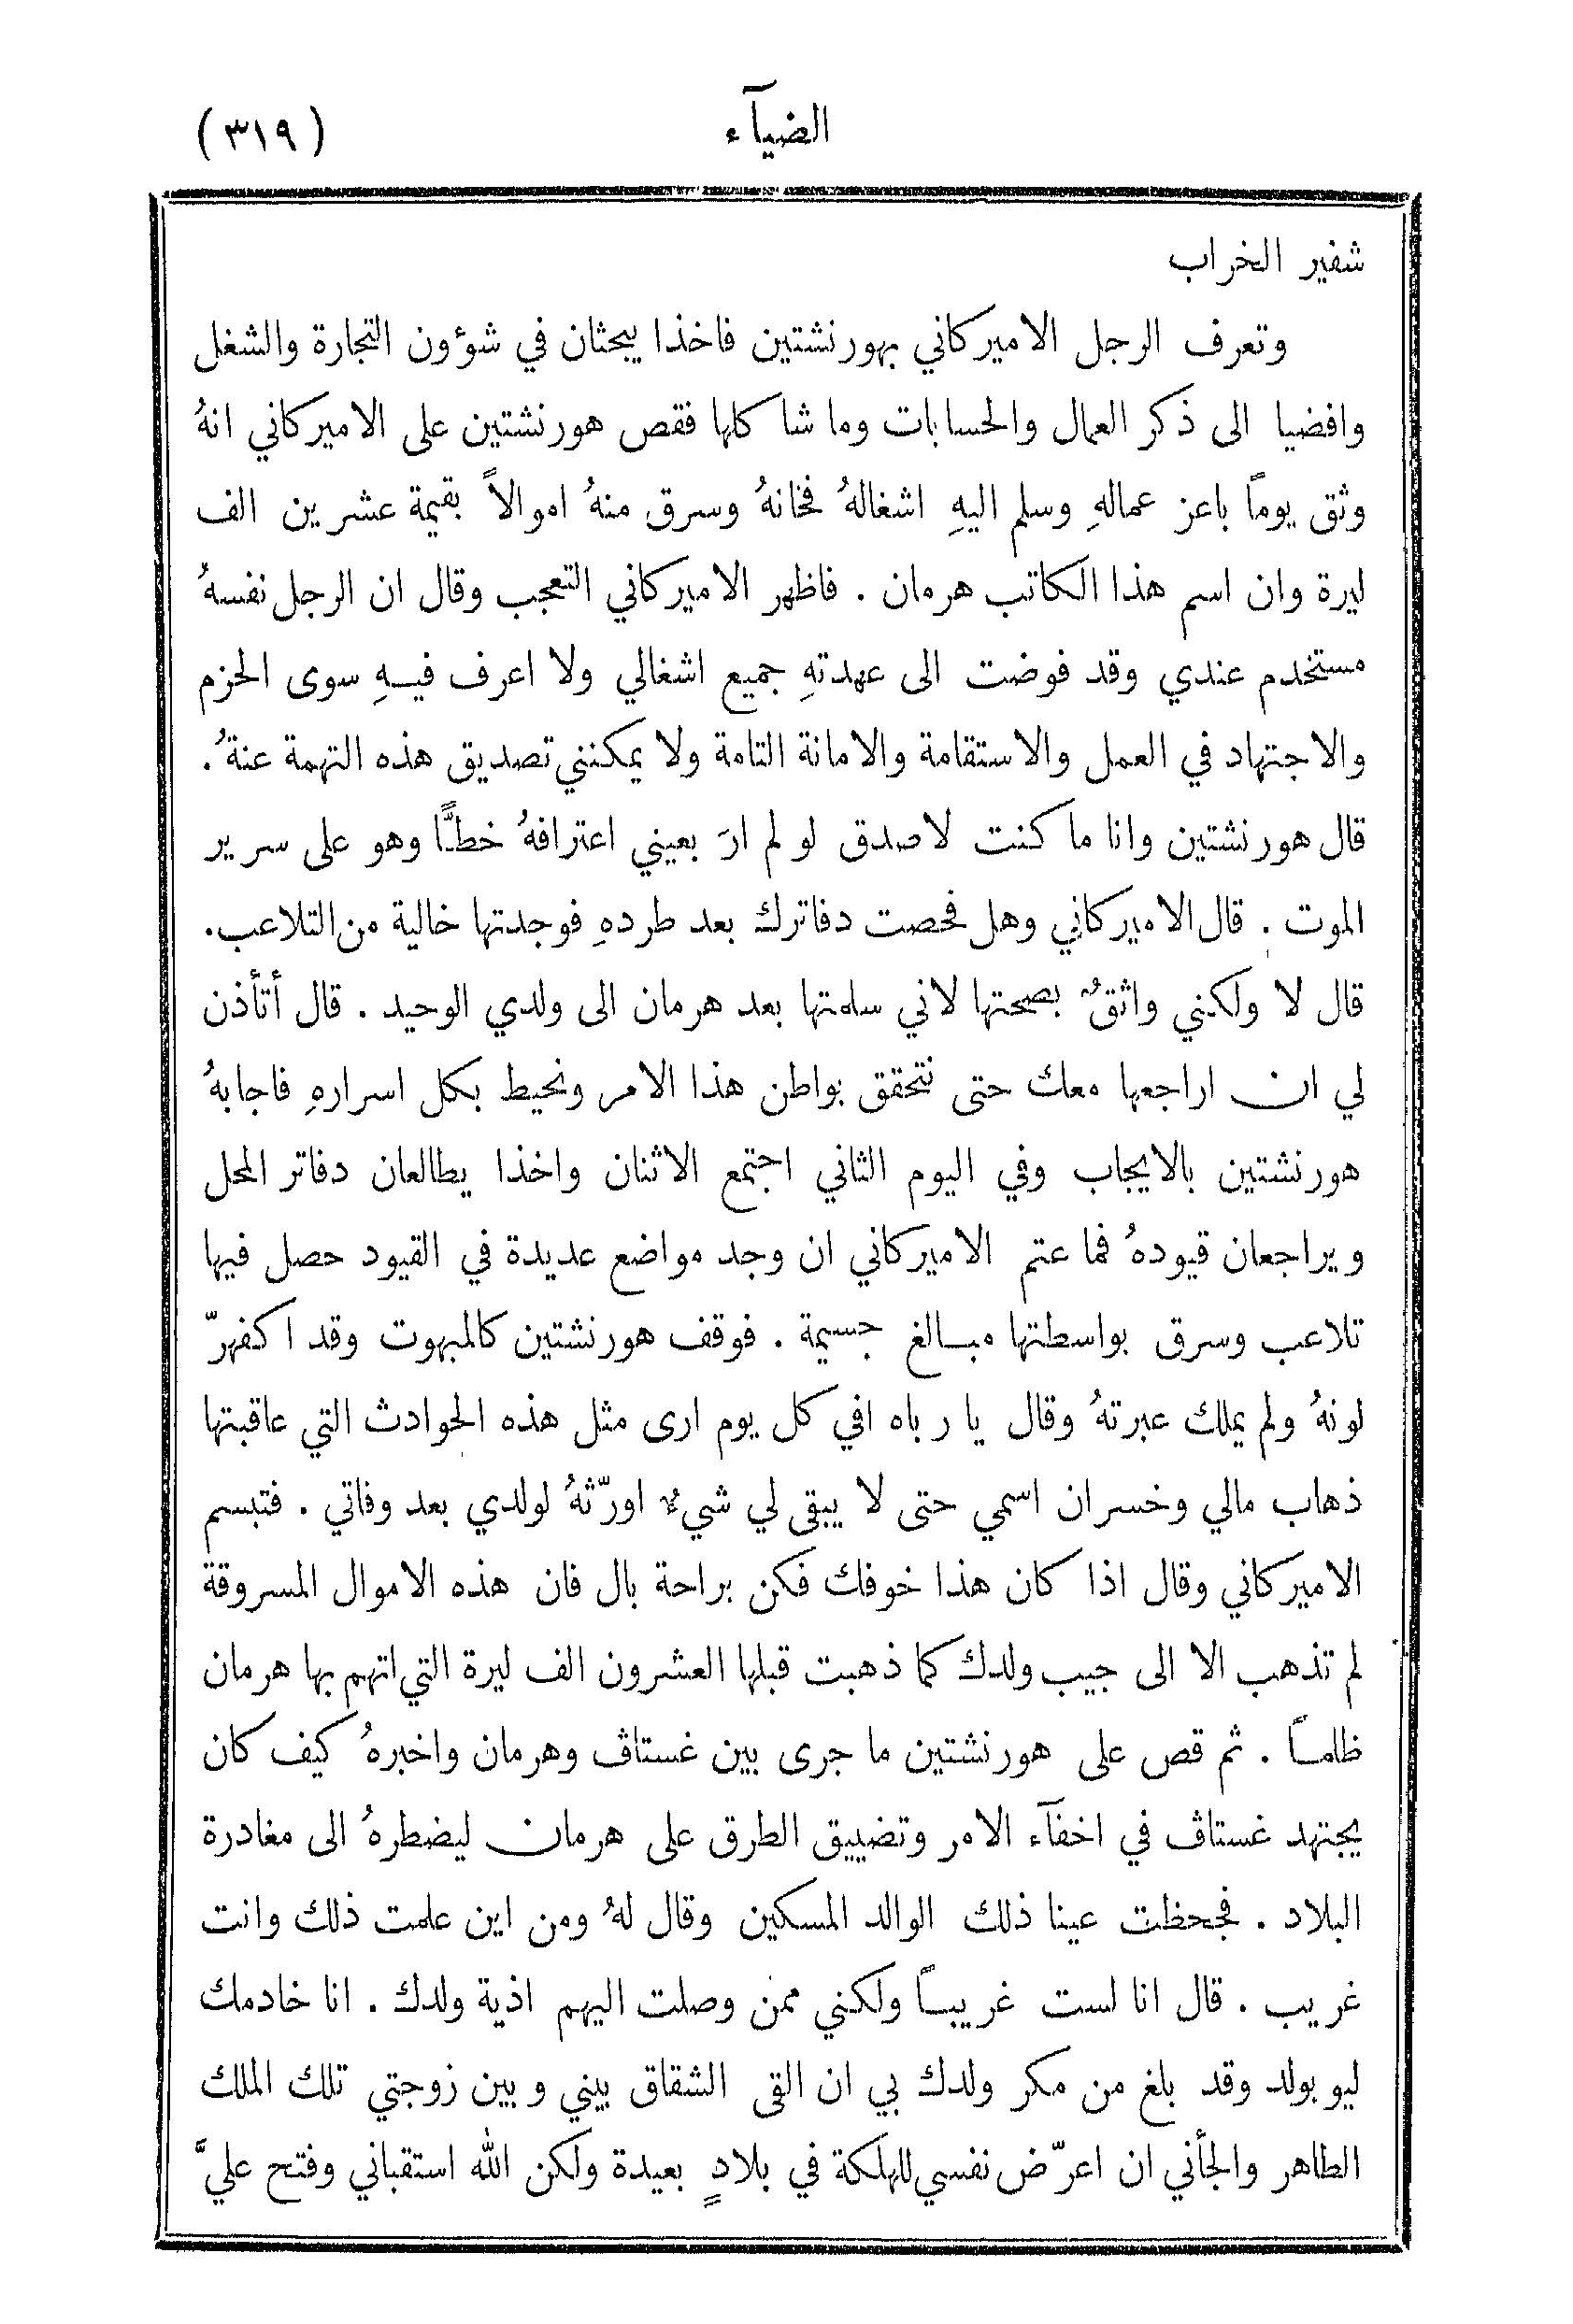 الضيآء
(٣١٩)
شفير الخراب
وتعرف الرجل الاميركاني بهورنشتين فاخذا يبحثان في شؤون التجارة والشغل
وافضيا الى ذكر العمال والحسابات وما شاكلها فقص هورنشتين على الاميركاني انهُ
وثق يوماً باعز عمالهِ وسلم اليهِ اشغالهُ فخانهُ وسرق منهُ اموالاً بقيمة عشرين الف
ليرة وان اسم هذا الكاتب هرمان . فاظهر الاميركاني التعجب وقال ان الرجل نفسهُ
مستخدم عندي وقد فوضت الى عهدتهِ جميع اشغالي ولا اعرف فيهِ سوى الحزم
والاجتهاد في العمل والاستقامة والامانة التامة ولا يمكنني تصديق هذه التهمة عنهُ .
قال هورنشتين وانا ما كنت لاصدق لو لم ارَ بعيني اعترافهُ خطًّا وهو على سرير
الموت . قال الاميركاني وهل فحصت دفاترك بعد طردهِ فوجدتها خالية من التلاعب .
قال لا ولكني واثقٌ بصحتها لاني سلمتها بعد هرمان الى ولدي الوحيد . قال أتأذن
لي ان اراجعها معك حتى نتحقق بواطن هذا الامر ونحيط بكل اسرارهِ فاجابهُ
هورنشتين بالايجاب وفي اليوم الثاني اجتمع الاثنان واخذا يطالعان دفاتر المحل
ويراجعان قيودهُ فما عتم الاميركاني ان وجد مواضع عديدة في القيود حصل فيها
تلاعب وسرق بواسطتها مبالغ جسيمة . فوقف هورنشتين كالمبهوت وقد اكفهرّ
لونهُ ولم يملك عبرتهُ وقال يا رباه افي كل يوم ارى مثل هذه الحوادث التي عاقبتها
ذهاب مالي وخسران اسمي حتى لا يبقى لي شيءٌ اورّثهُ لولدي بعد وفاتي . فتبسم
الاميركاني وقال اذا كان هذا خوفك فكن براحة بال فان هذه الاموال المسروقة
لم تذهب الا الى جيب ولدك كما ذهبت قبلها العشرون الف ليرة التي اتهم بها هرمان
ظلماً . ثم قص على هورنشتين ما جرى بين غستاڤ وهرمان واخبرهُ كيف كان
يجتهد غستاڤ في اخفآء الامر وتضييق الطرق على هرمان ليضطرهُ الى مغادرة
البلاد . فجحظت عينا ذلك الوالد المسكين وقال لهُ ومن اين علمت ذلك وانت
غريب . قال انا لست غريباً ولكني ممن وصلت اليهم اذية ولدك . انا خادمك
ليوبولد وقد بلغ من مكر ولدك بي ان القى الشقاق بيني وبين زوجتي تلك الملك
الطاهر والجأني ان اعرّض نفسي للهلكة في بلادٍ بعيدة ولكن الله استقباني وفتح عليَّ